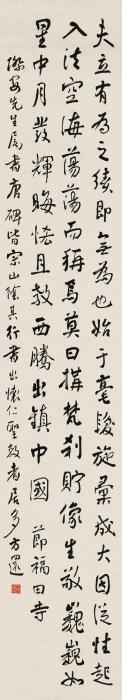 夫立有為之績即無為也始于毫髮施彙成大因從性起
入法空海蕩蕩而稱焉莫曰搆梵剎貯像生敬巍巍如
星中月發輝晦怯且教西騰出鎮中國 節福田寺
先生屬書唐碑皆宗山陰其行書出懷仁聖教者居多方還